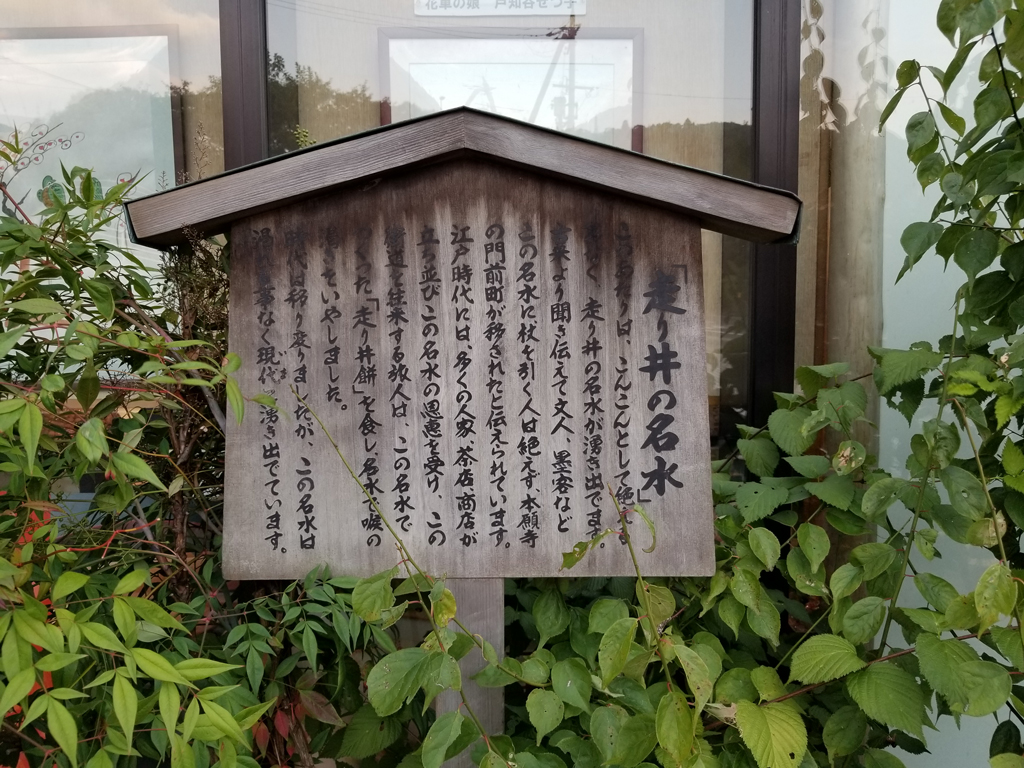 花車の娘 戸知谷せつ子
「走り井の名水」
このあたりは、こんこんとして絶
なく、走り井の名水が湧き出でます。
古来より聞き伝えて文人、墨客など
この名水に杖を引く人は絶えず、本願寺
の門前町が移されたと伝えられています。
江戸時代には、多くの人家、茶店、商店が
立ち並びこの名水の恩恵を受け、この
街道を往来する旅人は、この名水で
つくった「走り井餅」を食し、名水で喉の
渇きをいやしました。
時代は移り変りましたが、この名水は
涸る事なく現代も湧き出でています。